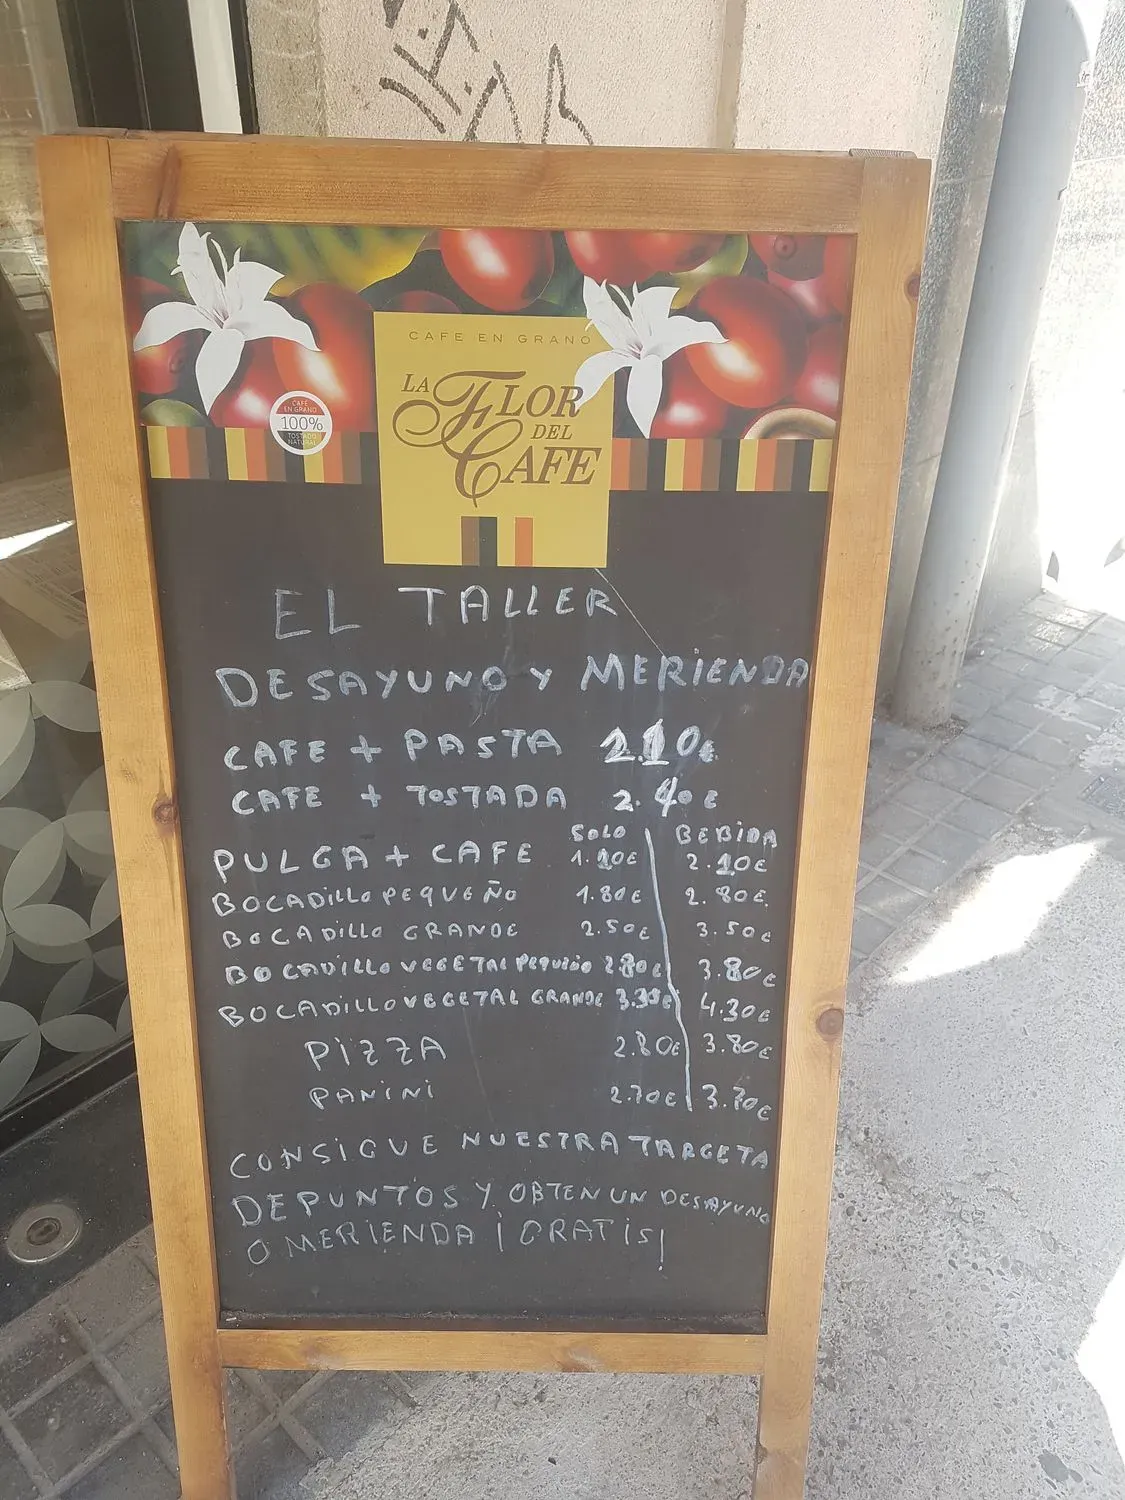 CAFE EN GRANO
LA FLOR
DEL
CAFE
CAFÉ
EN GRANO
100%
TOSTADO
NATURAL
EL TALLER
DESAYUNO Y MERIENDA
CAFE + PASTA 2.10€
CAFE + TOSTADA 2.40€
SOLO BEBIDA
PULGA + CAFE 1.10€ 2.10€
BOCADILLO PEQUEÑO 1.80€ 2.80€
BOCADILLO GRANDE 2.50€ 3.50€
BOCADILLO VEGETAL PEQUEÑO 2.80€ 3.80€
BOCADILLO VEGETAL GRANDE 3.30€ 4.30€
PIZZA 2.80€ 3.80€
PANINI 2.70€ 3.70€
CONSIGUE NUESTRA TARGETA
DE PUNTOS Y OBTEN UN DESAYUNO
O MERIENDA ¡GRATIS!